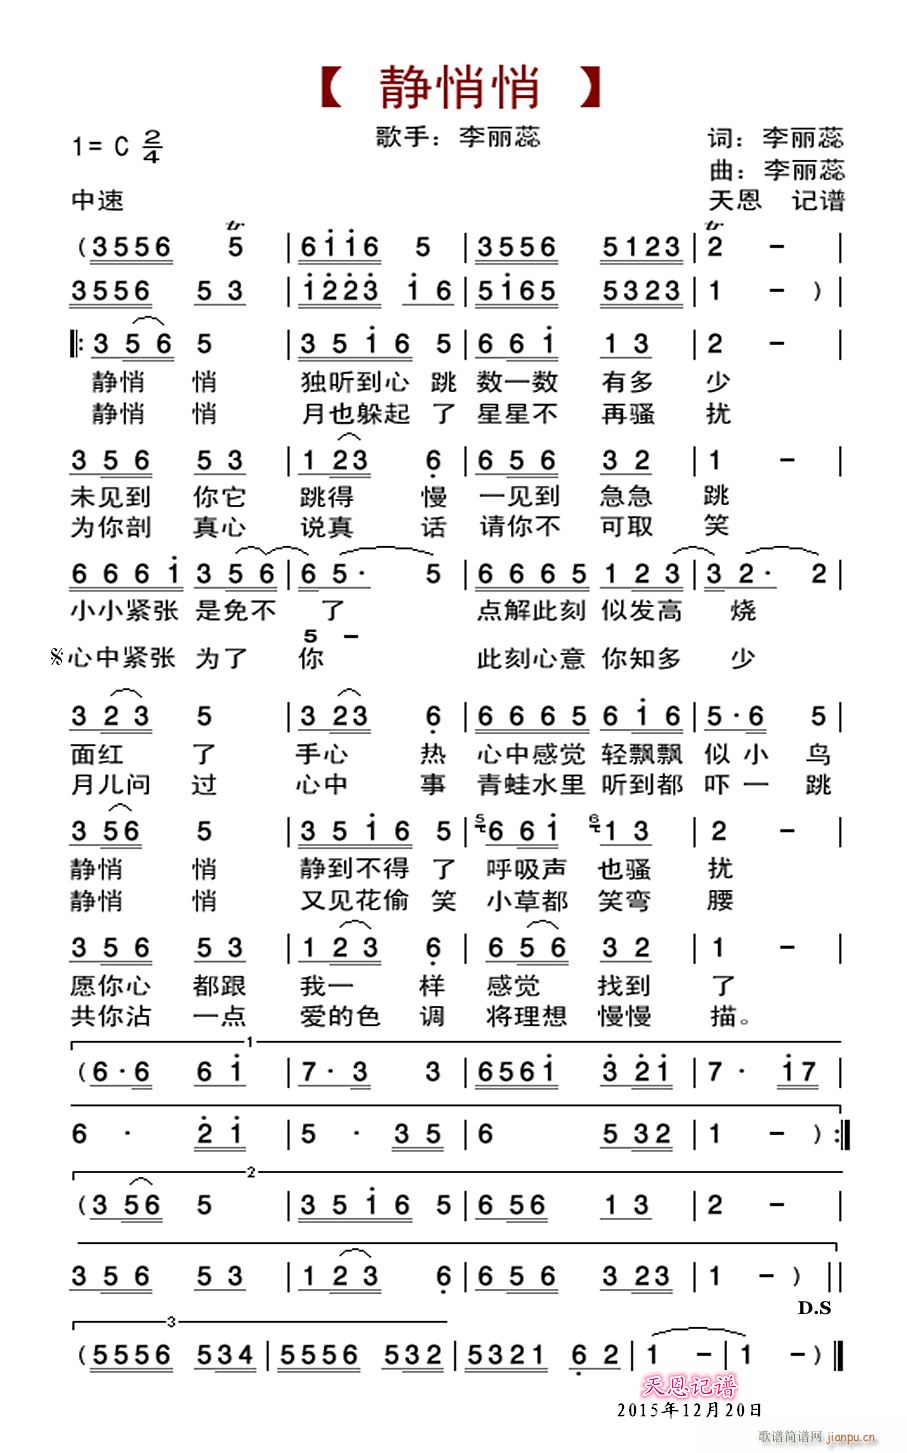 【 静悄悄 】
1= C 2/4
歌手：李丽蕊
词：李丽蕊
曲：李丽蕊
中速
天恩 记谱
( 3 5 5 6 5 | 6 i i 6 5 | 3 5 5 6 5 1 2 3 | 2 － |
3 5 5 6 5 3 | i 2 2 3 i 6 | 5 i 6 5 5 3 2 3 | 1 － ) |
‖: 3 5 6 5 | 3 5 i 6 5 | 6 6 i 1 3 | 2 － |
静悄 悄 独听到心 跳 数一数 有多 少
静悄 悄 月也躲起 了 星星不 再骚 扰
3 5 6 5 3 | 1 2 3 6 | 6 5 6 3 2 | 1 － |
未见到 你它 跳得 慢 一见到 急急 跳
为你剖 真心 说真 话 请你不 可取 笑
6 6 6 i 3 5 6 | 6 5 · 5 | 6 6 6 5 1 2 3 | 3 2 · 2 |
小小紧张 是免不 了 点解此刻 似发高 烧
5 －
𝄋 心中紧张 为了 你 此刻心意 你知多 少
3 2 3 5 | 3 2 3 6 | 6 6 6 5 6 i 6 | 5 · 6 5 |
面红 了 手心 热 心中感觉 轻飘飘 似小 鸟
月儿问 过 心中 事 青蛙水里 听到都 吓一 跳
3 5 6 5 | 3 5 i 6 5 | 5 6 6 i 6 1 3 | 2 － |
静悄 悄 静到不得 了 呼吸声 也骚 扰
静悄 悄 又见花偷 笑 小草都 笑弯 腰
3 5 6 5 3 | 1 2 3 6 | 6 5 6 3 2 | 1 － |
愿你心 都跟 我一 样 感觉 找到 了
共你沾 一点 爱的色 调 将理想 慢慢 描。
1
( 6 · 6 6 i | 7 · 3 3 | 6 5 6 i 3 2 i | 7 · i 7 |
6 · 2 i | 5 · 3 5 | 6 5 3 2 | 1 － ) :‖
2
( 3 5 6 5 | 3 5 i 6 5 | 6 5 6 1 3 | 2 － |
3 5 6 5 3 | 1 2 3 6 | 6 5 6 3 2 3 | 1 － ) ‖
D.S
3
( 5 5 5 6 5 3 4 | 5 5 5 6 5 3 2 | 5 3 2 1 6 2 | 1 － | 1 － ) ‖
天恩记谱
2015年12月20日
歌谱简谱网 jianpu.cn